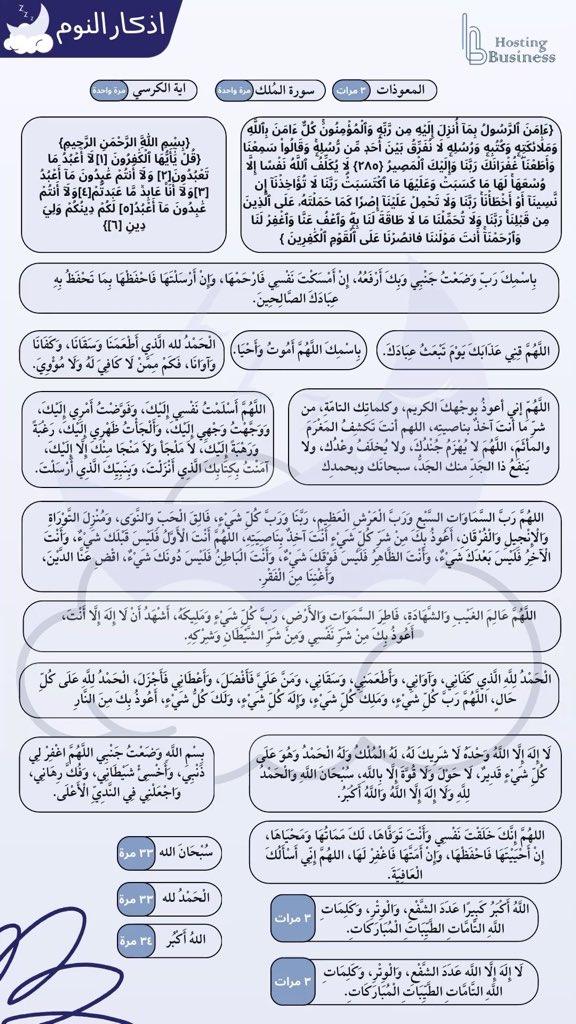 اذكار النوم
Hosting
Business
المعوذات ٣ مرات
سورة المُلك مرة واحدة
اية الكرسي مرة واحدة
{ءَامَنَ ٱلرَّسُولُ بِمَآ أُنزِلَ إِلَيْهِ مِن رَّبِّهِۦ وَٱلْمُؤْمِنُونَۚ كُلٌّ ءَامَنَ بِٱللَّهِ
وَمَلَٰٓئِكَتِهِۦ وَكُتُبِهِۦ وَرُسُلِهِۦ لَا نُفَرِّقُ بَيْنَ أَحَدٍ مِّن رُّسُلِهِۦۚ وَقَالُوا۟ سَمِعْنَا
وَأَطَعْنَاۖ غُفْرَانَكَ رَبَّنَا وَإِلَيْكَ ٱلْمَصِيرُ {٢٨٥} لَا يُكَلِّفُ ٱللَّهُ نَفْسًا إِلَّا
وُسْعَهَاۚ لَهَا مَا كَسَبَتْ وَعَلَيْهَا مَا ٱكْتَسَبَتْۗ رَبَّنَا لَا تُؤَاخِذْنَآ إِن
نَّسِينَآ أَوْ أَخْطَأْنَاۚ رَبَّنَا وَلَا تَحْمِلْ عَلَيْنَآ إِصْرًا كَمَا حَمَلْتَهُۥ عَلَى ٱلَّذِينَ
مِن قَبْلِنَاۚ رَبَّنَا وَلَا تُحَمِّلْنَا مَا لَا طَاقَةَ لَنَا بِهِۦۖ وَٱعْفُ عَنَّا وَٱغْفِرْ لَنَا
وَٱرْحَمْنَآۚ أَنتَ مَوْلَىٰنَا فَٱنصُرْنَا عَلَى ٱلْقَوْمِ ٱلْكَٰفِرِينَ }
{بِسْمِ اللَّهِ الرَّحْمَنِ الرَّحِيمِ}
{قُلْ يَٰٓأَيُّهَا ٱلْكَٰفِرُونَ [١] لَآ أَعْبُدُ مَا
تَعْبُدُونَ[٢] وَلَآ أَنتُمْ عَٰبِدُونَ مَآ أَعْبُدُ
[٣]وَلَآ أَنَا۠ عَابِدٌ مَّا عَبَدتُّمْ[٤]وَلَآ أَنتُمْ
عَٰبِدُونَ مَآ أَعْبُدُ[٥] لَكُمْ دِينُكُمْ وَلِيَ
دِينِ [٦]}
بِاسْمِكَ رَبِّ وَضَعْتُ جَنْبِي وَبِكَ أَرْفَعُهُ، إِنْ أَمْسَكْتَ نَفْسِي فَارْحَمْهَا، وَإِنْ أَرْسَلْتَهَا فَاحْفَظْهَا بِمَا تَحْفَظُ بِهِ
عِبَادَكَ الصَّالِحِينَ.
اللَّهُمَّ قِنِي عَذَابَكَ يَوْمَ تَبْعَثُ عِبَادَكَ.
بِاسْمِكَ اللَّهُمَّ أَمُوتُ وَأَحْيَا.
الْحَمْدُ لله الَّذِي أَطْعَمَنَا وَسَقَانَا، وَكَفَانَا
وَآوَانَا، فَكَمْ مِمَّنْ لَا كَافِيَ لَهُ وَلَا مُؤْوِيَ.
اللَّهُمَّ إني أعوذُ بوجْهِكَ الكريم، وكلماتِك التامّةِ، من
شرّ ما أنتَ آخذٌ بناصيتِه، اللهم أنتَ تَكشِفُ المَغْرَمَ
والمأثَمَ، اللَّهُمّ لا يُهْزَمُ جُنْدُكَ، ولا يُخلَفُ وعْدُك، ولا
ينفعُ ذا الجَدِّ منك الجَدُّ، سبحانَك وبحمدِك
اللَّهُمَّ أَسْلَمْتُ نَفْسِي إِلَيْكَ، وَفَوَّضْتُ أَمْرِي إِلَيْكَ،
وَوَجَّهْتُ وَجْهِي إِلَيْكَ، وَأَلْجَأْتُ ظَهْرِي إِلَيْكَ، رَغْبَةً
وَرَهْبَةً إِلَيْكَ، لاَ مَلْجَأَ وَلاَ مَنْجَا مِنْكَ إِلَّا إِلَيْكَ،
آمَنْتُ بِكِتَابِكَ الَّذِي أَنْزَلْتَ، وَبِنَبِيِّكَ الَّذِي أَرْسَلْتَ.
اللَّهُمَّ رَبَّ السَّمَاوَاتِ السَّبْعِ وَرَبَّ الْعَرْشِ الْعَظِيمِ، رَبَّنَا وَرَبَّ كُلِّ شَيْءٍ، فَالِقَ الْحَبِّ وَالنَّوَى، وَمُنْزِلَ التَّوْرَاةِ
وَالإِنْجِيلِ وَالْفُرْقَانِ، أَعُوذُ بِكَ مِنْ شَرِّ كُلِّ شَيْءٍ أَنْتَ آخِذٌ بِنَاصِيَتِهِ، اللَّهُمَّ أَنْتَ الْأَوَّلُ فَلَيْسَ قَبْلَكَ شَيْءٌ، وَأَنْتَ
الْآخِرُ فَلَيْسَ بَعْدَكَ شَيْءٌ، وَأَنْتَ الظَّاهِرُ فَلَيْسَ فَوْقَكَ شَيْءٌ، وَأَنْتَ الْبَاطِنُ فَلَيْسَ دُونَكَ شَيْءٌ، اقْضِ عَنَّا الدَّيْنَ،
وَأَغْنِنَا مِنَ الْفَقْرِ.
اللَّهُمَّ عَالِمَ الغَيْبِ وَالشَّهَادَةِ، فَاطِرَ السَّمَوَاتِ وَالأَرْضِ، رَبَّ كُلِّ شَيْءٍ وَمَلِيكَهُ، أَشْهَدُ أَنْ لَا إِلَهَ إِلَّا أَنْتَ،
أَعُوذُ بِكَ مِنْ شَرِّ نَفْسِي وَمِنْ شَرِّ الشَّيْطَانِ وَشِرْكِهِ.
الْحَمْدُ لِلَّهِ الَّذِي كَفَانِي، وَآوَانِي، وَأَطْعَمَنِي، وَسَقَانِي، وَمَنَّ عَلَيَّ فَأَفْضَلَ، وَأَعْطَانِي فَأَجْزَلَ، الْحَمْدُ لِلَّهِ عَلَى كُلِّ
حَالٍ، اللَّهُمَّ رَبَّ كُلِّ شَيْءٍ، وَمَلِكَ كُلِّ شَيْءٍ، وَإِلَهَ كُلِّ شَيْءٍ، وَلَكَ كُلُّ شَيْءٍ، أَعُوذُ بِكَ مِنَ النَّارِ
لَا إِلَهَ إِلَّا اللَّهُ وَحْدَهُ لَا شَرِيكَ لَهُ، لَهُ الْمُلْكُ وَلَهُ الْحَمْدُ وَهُوَ عَلَى
كُلِّ شَيْءٍ قَدِيرٌ، لَا حَوْلَ وَلَا قُوَّةَ إِلَّا بِاللَّهِ، سُبْحَانَ اللَّهِ وَالْحَمْدُ
لِلَّهِ وَلَا إِلَهَ إِلَّا اللَّهُ وَاللَّهُ أَكْبَرُ.
بِسْمِ اللَّهِ وَضَعْتُ جَنْبِي اللَّهُمَّ اغْفِرْ لِي
ذَنْبِي، وَأَخْسِئْ شَيْطَانِي، وَفُكَّ رِهَانِي،
وَاجْعَلْنِي فِي النَّدِيِّ الْأَعْلَى.
اللَّهُمَّ إِنَّكَ خَلَقْتَ نَفْسِي وَأَنْتَ تَوَفَّاهَا، لَكَ مَمَاتُهَا وَمَحْيَاهَا،
إِنْ أَحْيَيْتَهَا فَاحْفَظْهَا، وَإِنْ أَمَتَّهَا فَاغْفِرْ لَهَا، اللَّهُمَّ إِنِّي أَسْأَلُكَ
الْعَافِيَةَ.
سُبْحَانَ الله ٣٣ مرة
الْحَمْدُ لله ٣٣ مرة
اللهُ أَكْبَرُ ٣٤ مرة
اللَّهُ أَكْبَرُ كَبِيرًا عَدَدَ الشَّفْعِ، وَالْوِتْرِ، وَكَلِمَاتِ
اللَّهِ التَّامَّاتِ الطَّيِّبَاتِ الْمُبَارَكَاتِ.
٣ مرات
لَا إِلَهَ إِلَّا اللَّهُ عَدَدَ الشَّفْعِ، وَالْوِتْرِ، وَكَلِمَاتِ
اللَّهِ التَّامَّاتِ الطَّيِّبَاتِ الْمُبَارَكَاتِ.
٣ مرات